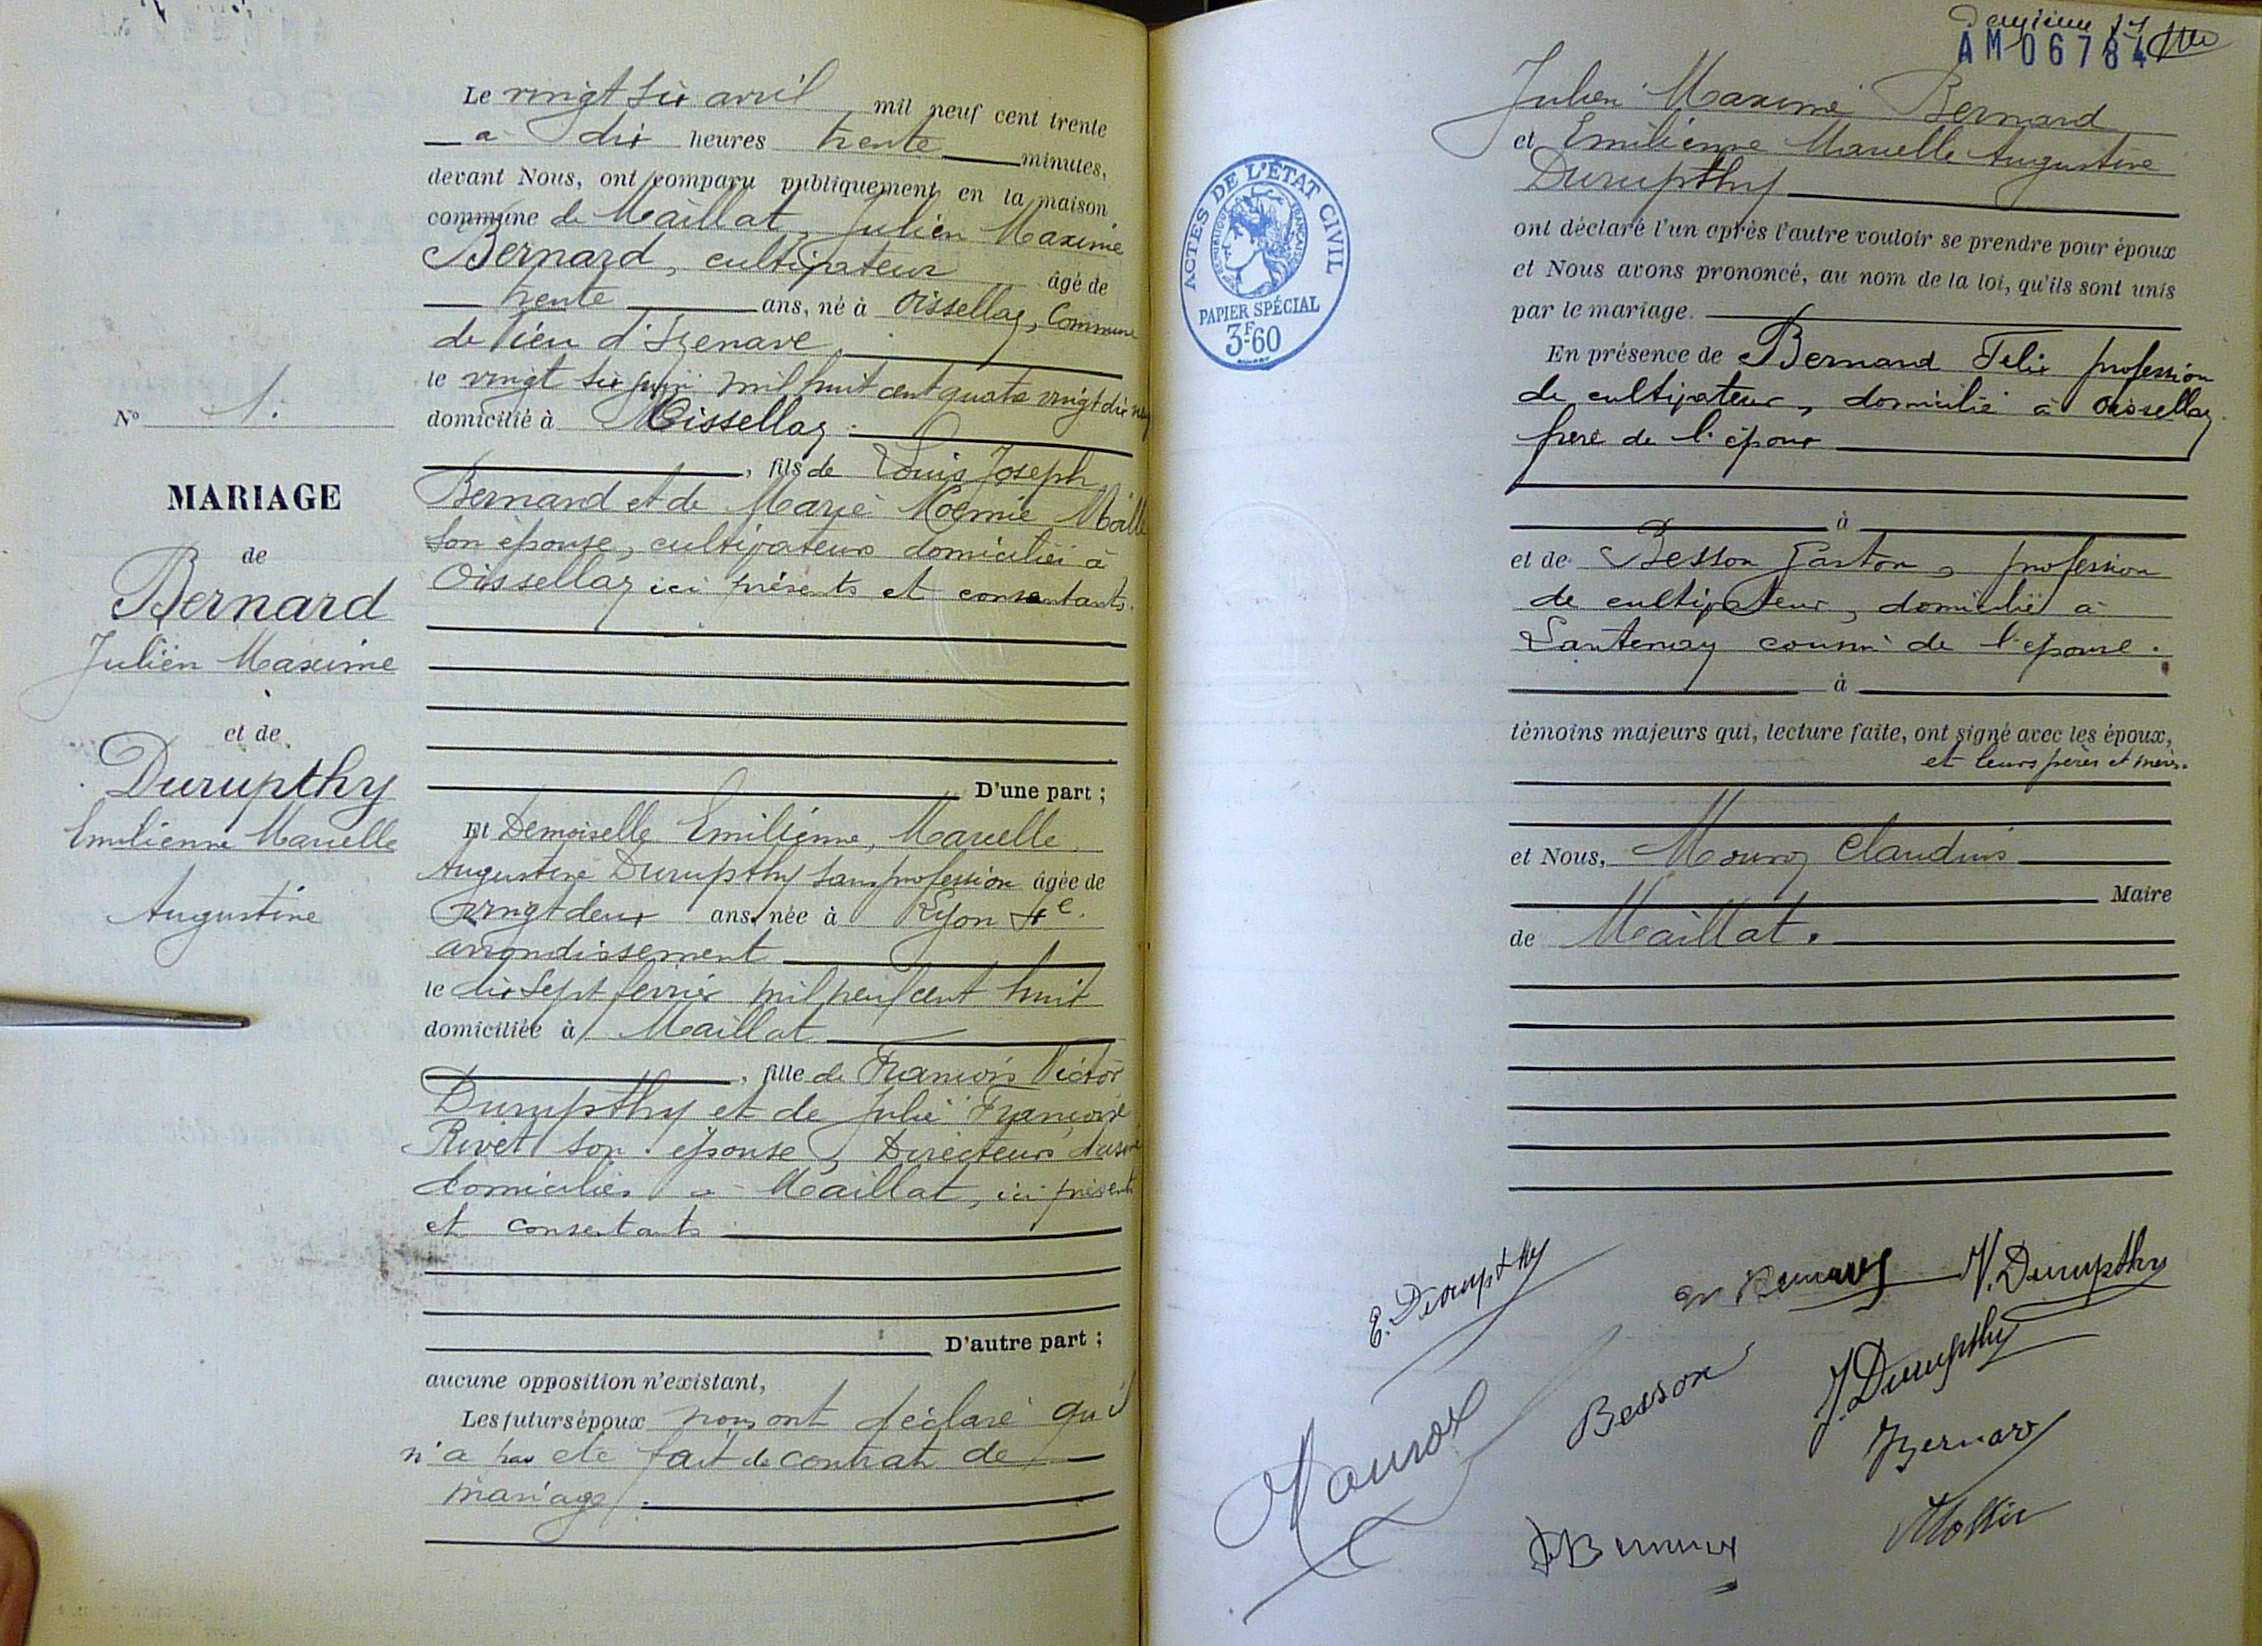 N° 1.
MARIAGE
de
Bernard
Julien Maxime
et de
Durupthy
Emilienne Marcelle
Augustine
Le vingt six avril mil neuf cent trente
a dix heures trente minutes,
devant Nous, ont comparu publiquement en la maison
commune de Maillat, Julien Maxime
Bernard, cultivateur âgé de
trente ans, né à Oissellaz, Commune
de Vieu d'Izenave
le vingt six juin mil huit cent quatre vingt dix neuf
domicilié à Oissellaz.
, fils de Louis Joseph
Bernard et de Marie Noémie
son épouse, cultivateurs domiciliés à
Oissellaz ici présents et consentants.
D'une part ;
Et Demoiselle Emilienne, Marcelle
Augustine Durupthy sans profession âgée de
vingt deux ans, née à Lyon
arrondissement
le dix sept fevrier mil neuf cent huit
domiciliée à Maillat
, fille de François Victor
Durupthy et de Julie Françoise
Rivet son épouse, Directeurs d'usine
domiciliés à Maillat, ici présents
et consentants
D'autre part ;
aucune opposition n'existant,
Les futurs époux nous ont déclaré qu'il
n'a pas été fait de contrat de
mariage.
AM 06784
Julien Maxime Bernard
et Emilienne Marcelle Augustine
Durupthy
ont déclaré l'un après l'autre vouloir se prendre pour époux
et Nous avons prononcé, au nom de la loi, qu'ils sont unis
par le mariage.
ACTES DE L'ÉTAT CIVIL
RÉPUBLIQUE FRANÇAISE
PAPIER SPÉCIAL
3F60
En présence de Bernard Félix profession
de cultivateur, domicilié à Oissellaz
frère de l'époux
à
et de Besson Gaston, profession
de cultivateur, domicilié à
Lantenay cousin de l'épouse.
à
témoins majeurs qui, lecture faite, ont signé avec les époux,
et leurs pères et mères.
et Nous, Mouroz Claudius
Maire
de Maillat.
E. Durupthy
V. Durupthy
Besson
J. Durupthy
Mouroz
Bernard